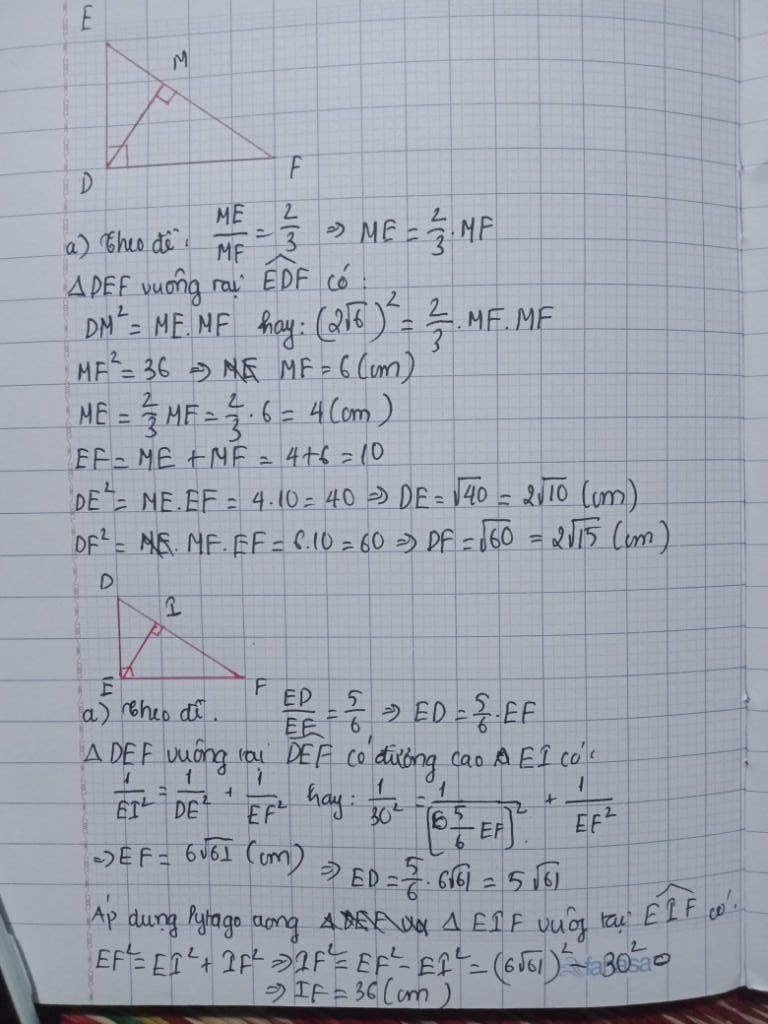 E
M
D
F
a) Theo đề: ME/MF = 2/3 ⇒ ME = 2/3 . MF
ΔDEF vuông tại \widehat{EDF} có:
DM² = ME.MF hay: (2√6)² = 2/3 . MF . MF
MF² = 36 ⇒ MF = 6 (cm)
ME = 2/3 MF = 2/3 . 6 = 4 (cm)
EF = ME + MF = 4+6 = 10
DE² = ME.EF = 4.10 = 40 ⇒ DE = √40 = 2√10 (cm)
DF² = MF.EF = 6.10 = 60 ⇒ DF = √60 = 2√15 (cm)
D
I
E
F
a) Theo đề. ED/EF = 5/6 ⇒ ED = 5/6 . EF
Δ DEF vuông tại \widehat{DEF} có đường cao EI có:
1/EI² = 1/DE² + 1/EF² hay: 1/30² = 1/[5/6 EF]² + 1/EF²
⇒ EF = 6√61 (cm) ⇒ ED = 5/6 . 6√61 = 5√61
Áp dụng Pytago trong Δ EIF vuông tại \widehat{EIF} có:
EF² = EI² + IF² ⇒ IF² = EF² - EI² = (6√61)² - 30²
⇒ IF = 36 (cm)